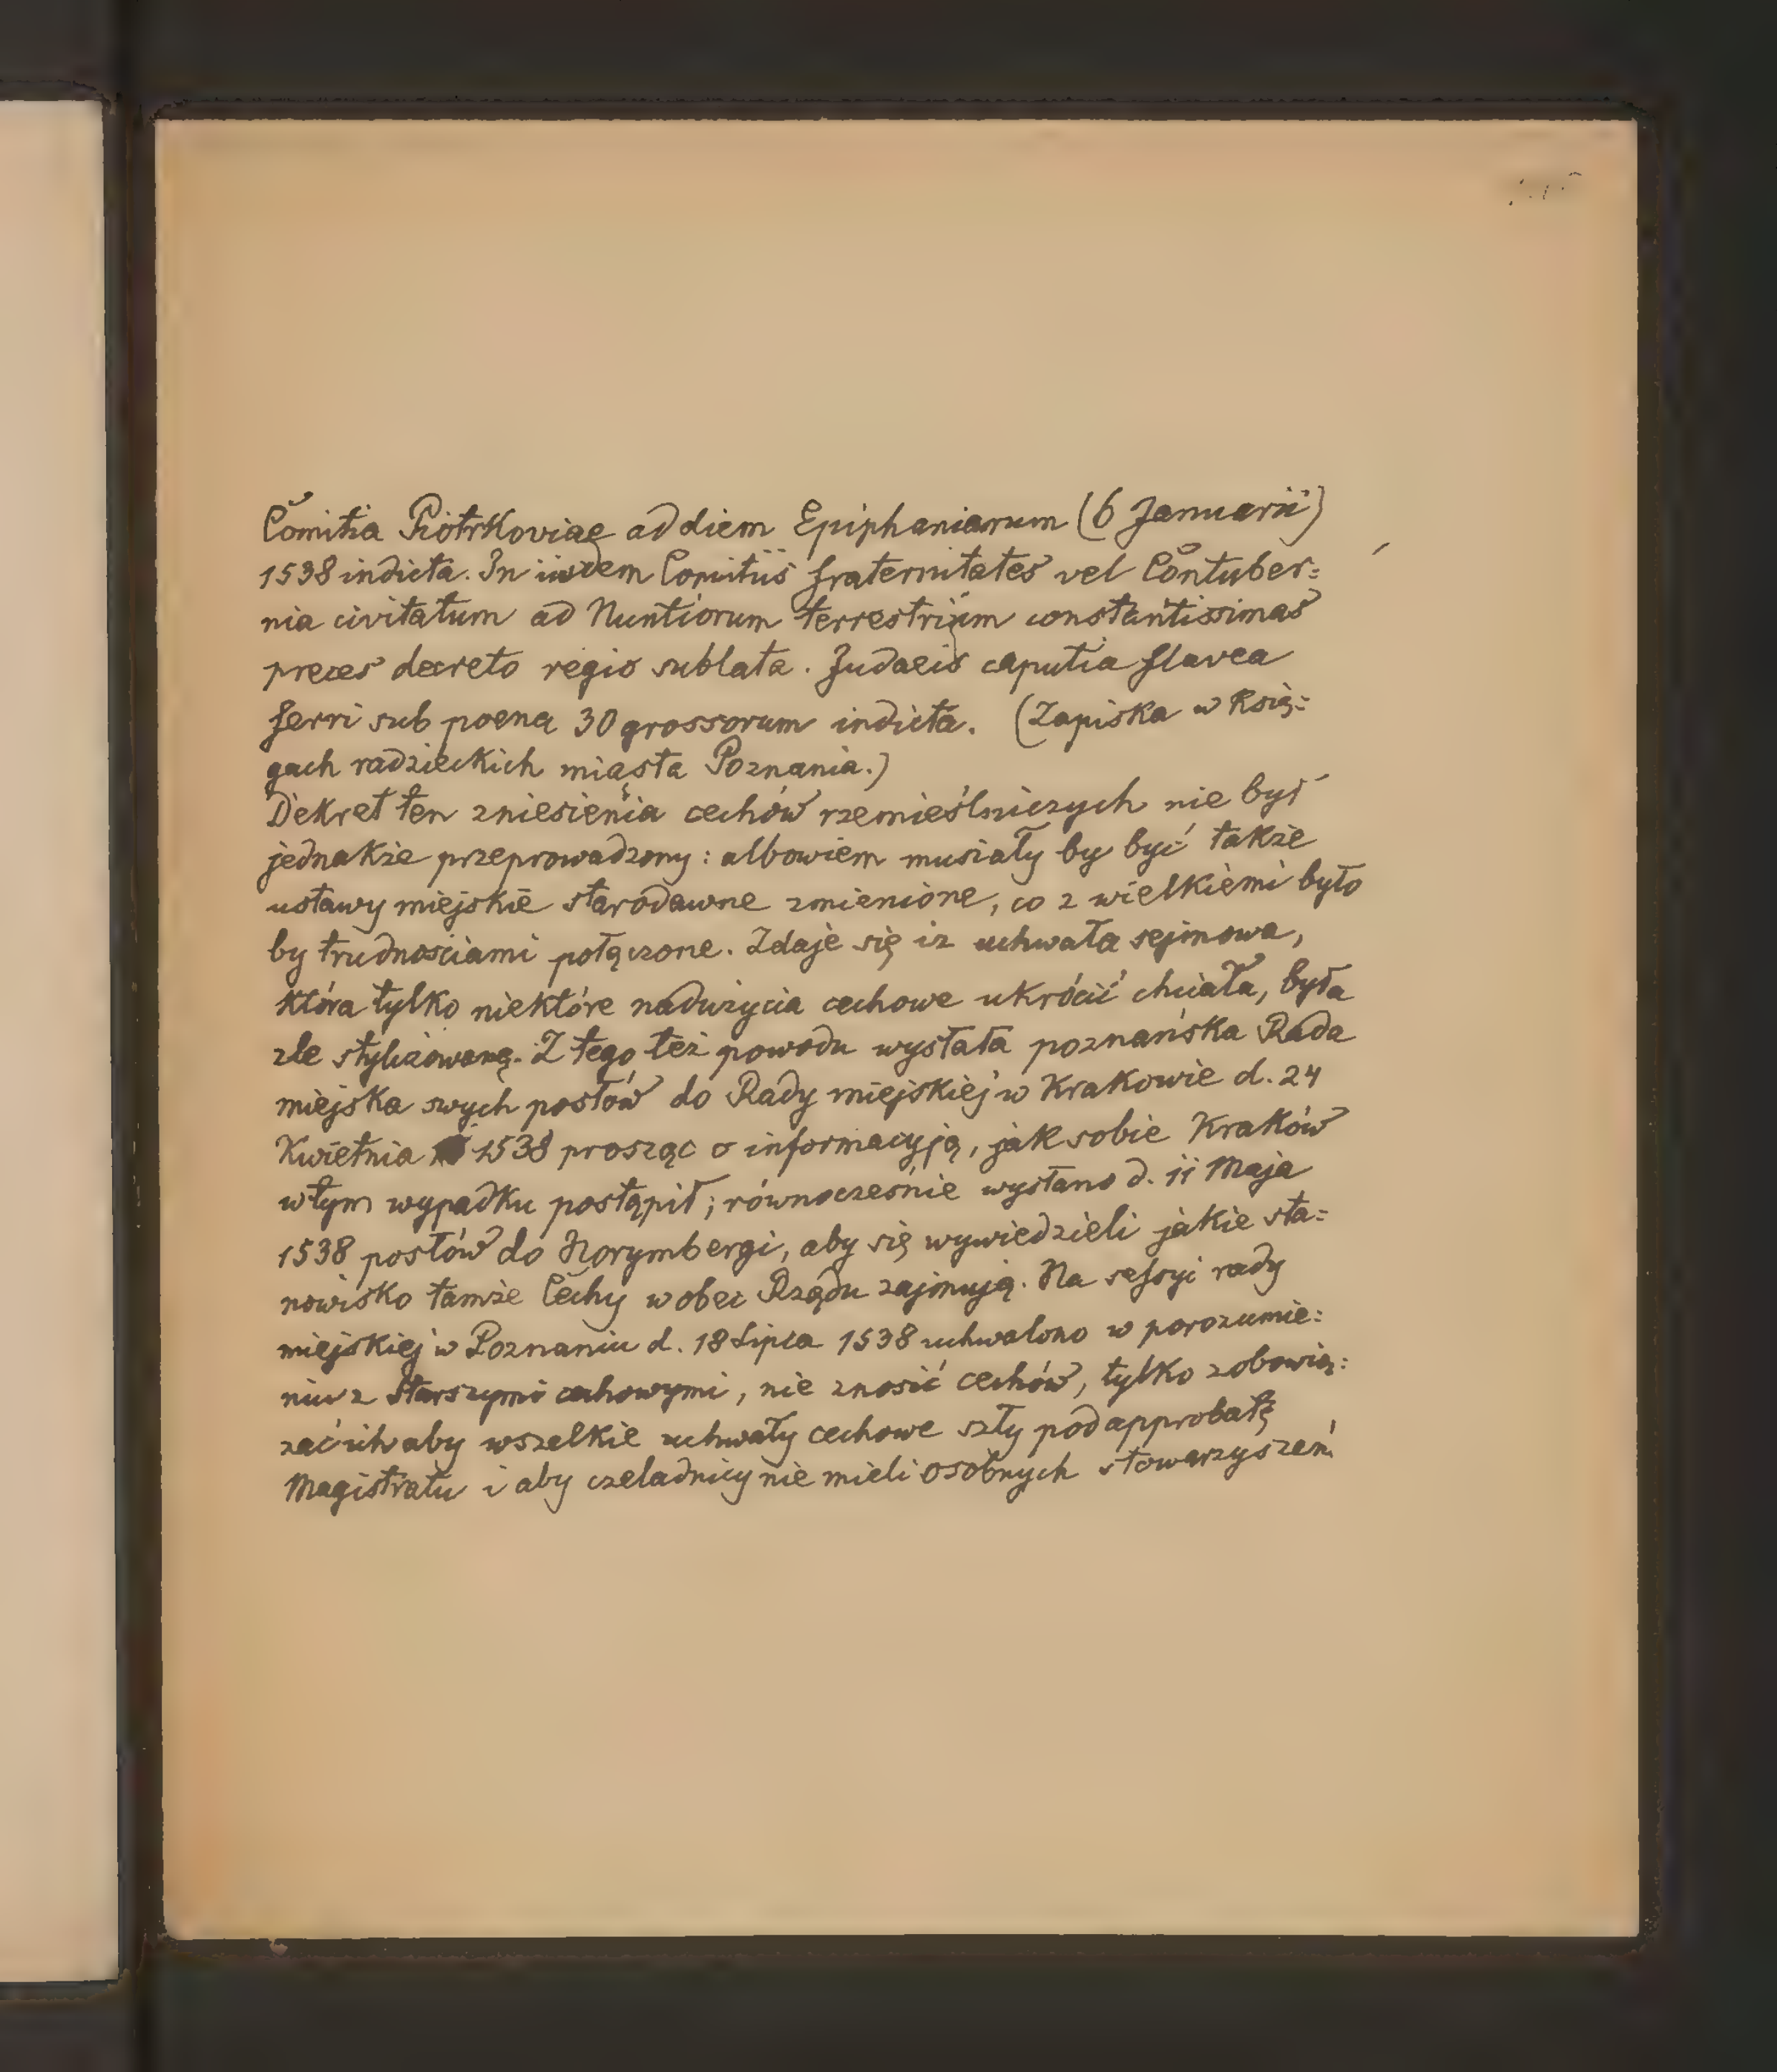 Comitia Piotrkoviae ad diem Epiphaniarum (6 Januarii)
1538 indicta. In iisdem Comitiis fraternitates vel Contuber=
nia civitatum ad Nuntiorum terrestrium constantissimas
preces decreto regio sublata. Judaeis caputia flavea
ferri sub poena 30 grossorum indicta. (Zapiska w Księ=
gach radzieckich miasta Poznania.)
Dekret ten zniesienia cechów rzemieślniczych nie był
jednakże przeprowadzony: albowiem musiały by być także
ustawy miejskie starodawne zmienione, co z wielkiemi było
by trudnościami połączone. Zdaje się iz uchwała sejmowa,
która tylko niektóre nadużycia cechowe ukrócić chciała, była
zle stylizowaną. Z tego też powodu wysłała poznańska Rada
miejska swych posłów do Rady miejskiej w Krakowie d. 24
Kwietnia 1538 prosząc o informacyją, jak sobie Kraków
w tym wypadku postąpił; równocześnie wysłano d. 11 Maja
1538 posłów do Norymbergi, aby się wywiedzieli jakie sta=
nowisko tamże Cechy wobec Rządu zajmują. Na sessyi rady
miejskiej w Poznaniu d. 18 Lipca 1538 uchwalono w porozumie=
niu z Starszymi cechowymi, nie znosić cechów, tylko zobowią=
zać ich aby wszelkie uchwały cechowe szły pod approbatę
Magistratu i aby czeladnicy nie mieli osobnych stowarzyszeń